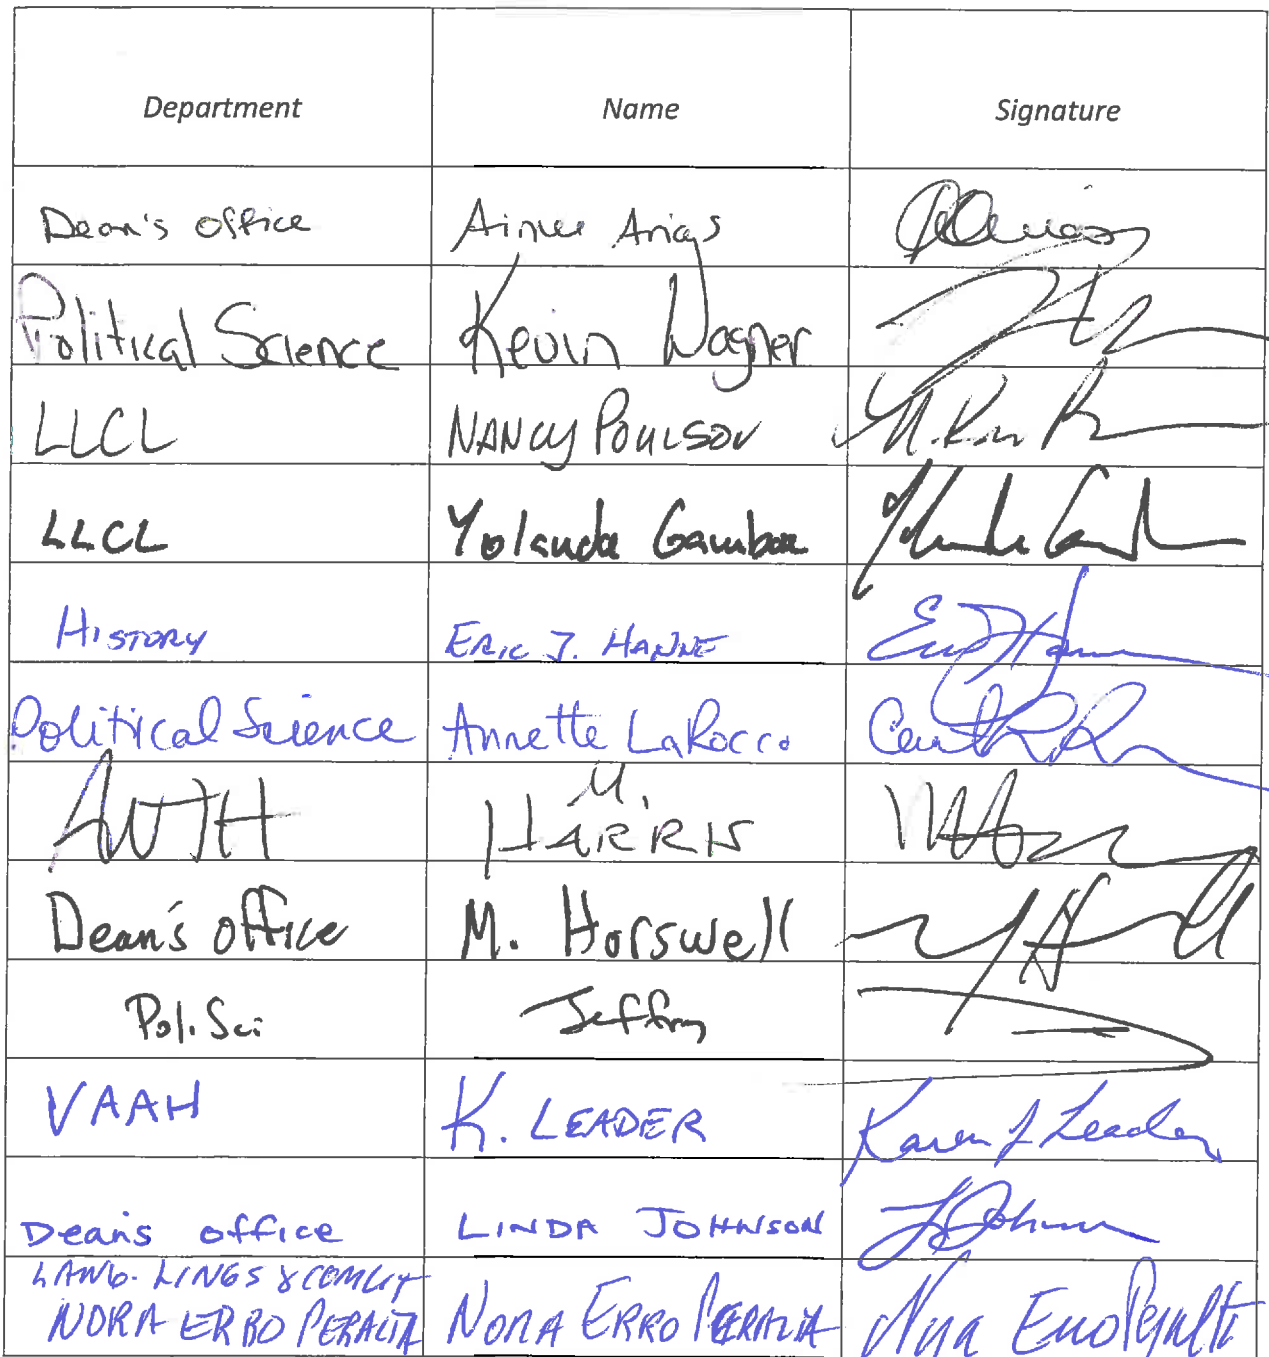 Department Name Signature
Dean's office Aimee Arias
Political Science Kevin Wagner
LLCL NANCY POULSON
LLCL Yolanda Gamboa
HISTORY ERIC J. HANNE
Political Science Annette LaRocco
M.
HARRIS
Dean's office M. Horswell
Pol. Sci Jeffrey
VAAH K. LEADER Karen J Leader
Deans office LINDA JOHNSON LJohnson
LANG. LINGS & COMLIT
NORA ERRO PERALTA NORA ERRO PERALTA Nora Erro Peralta